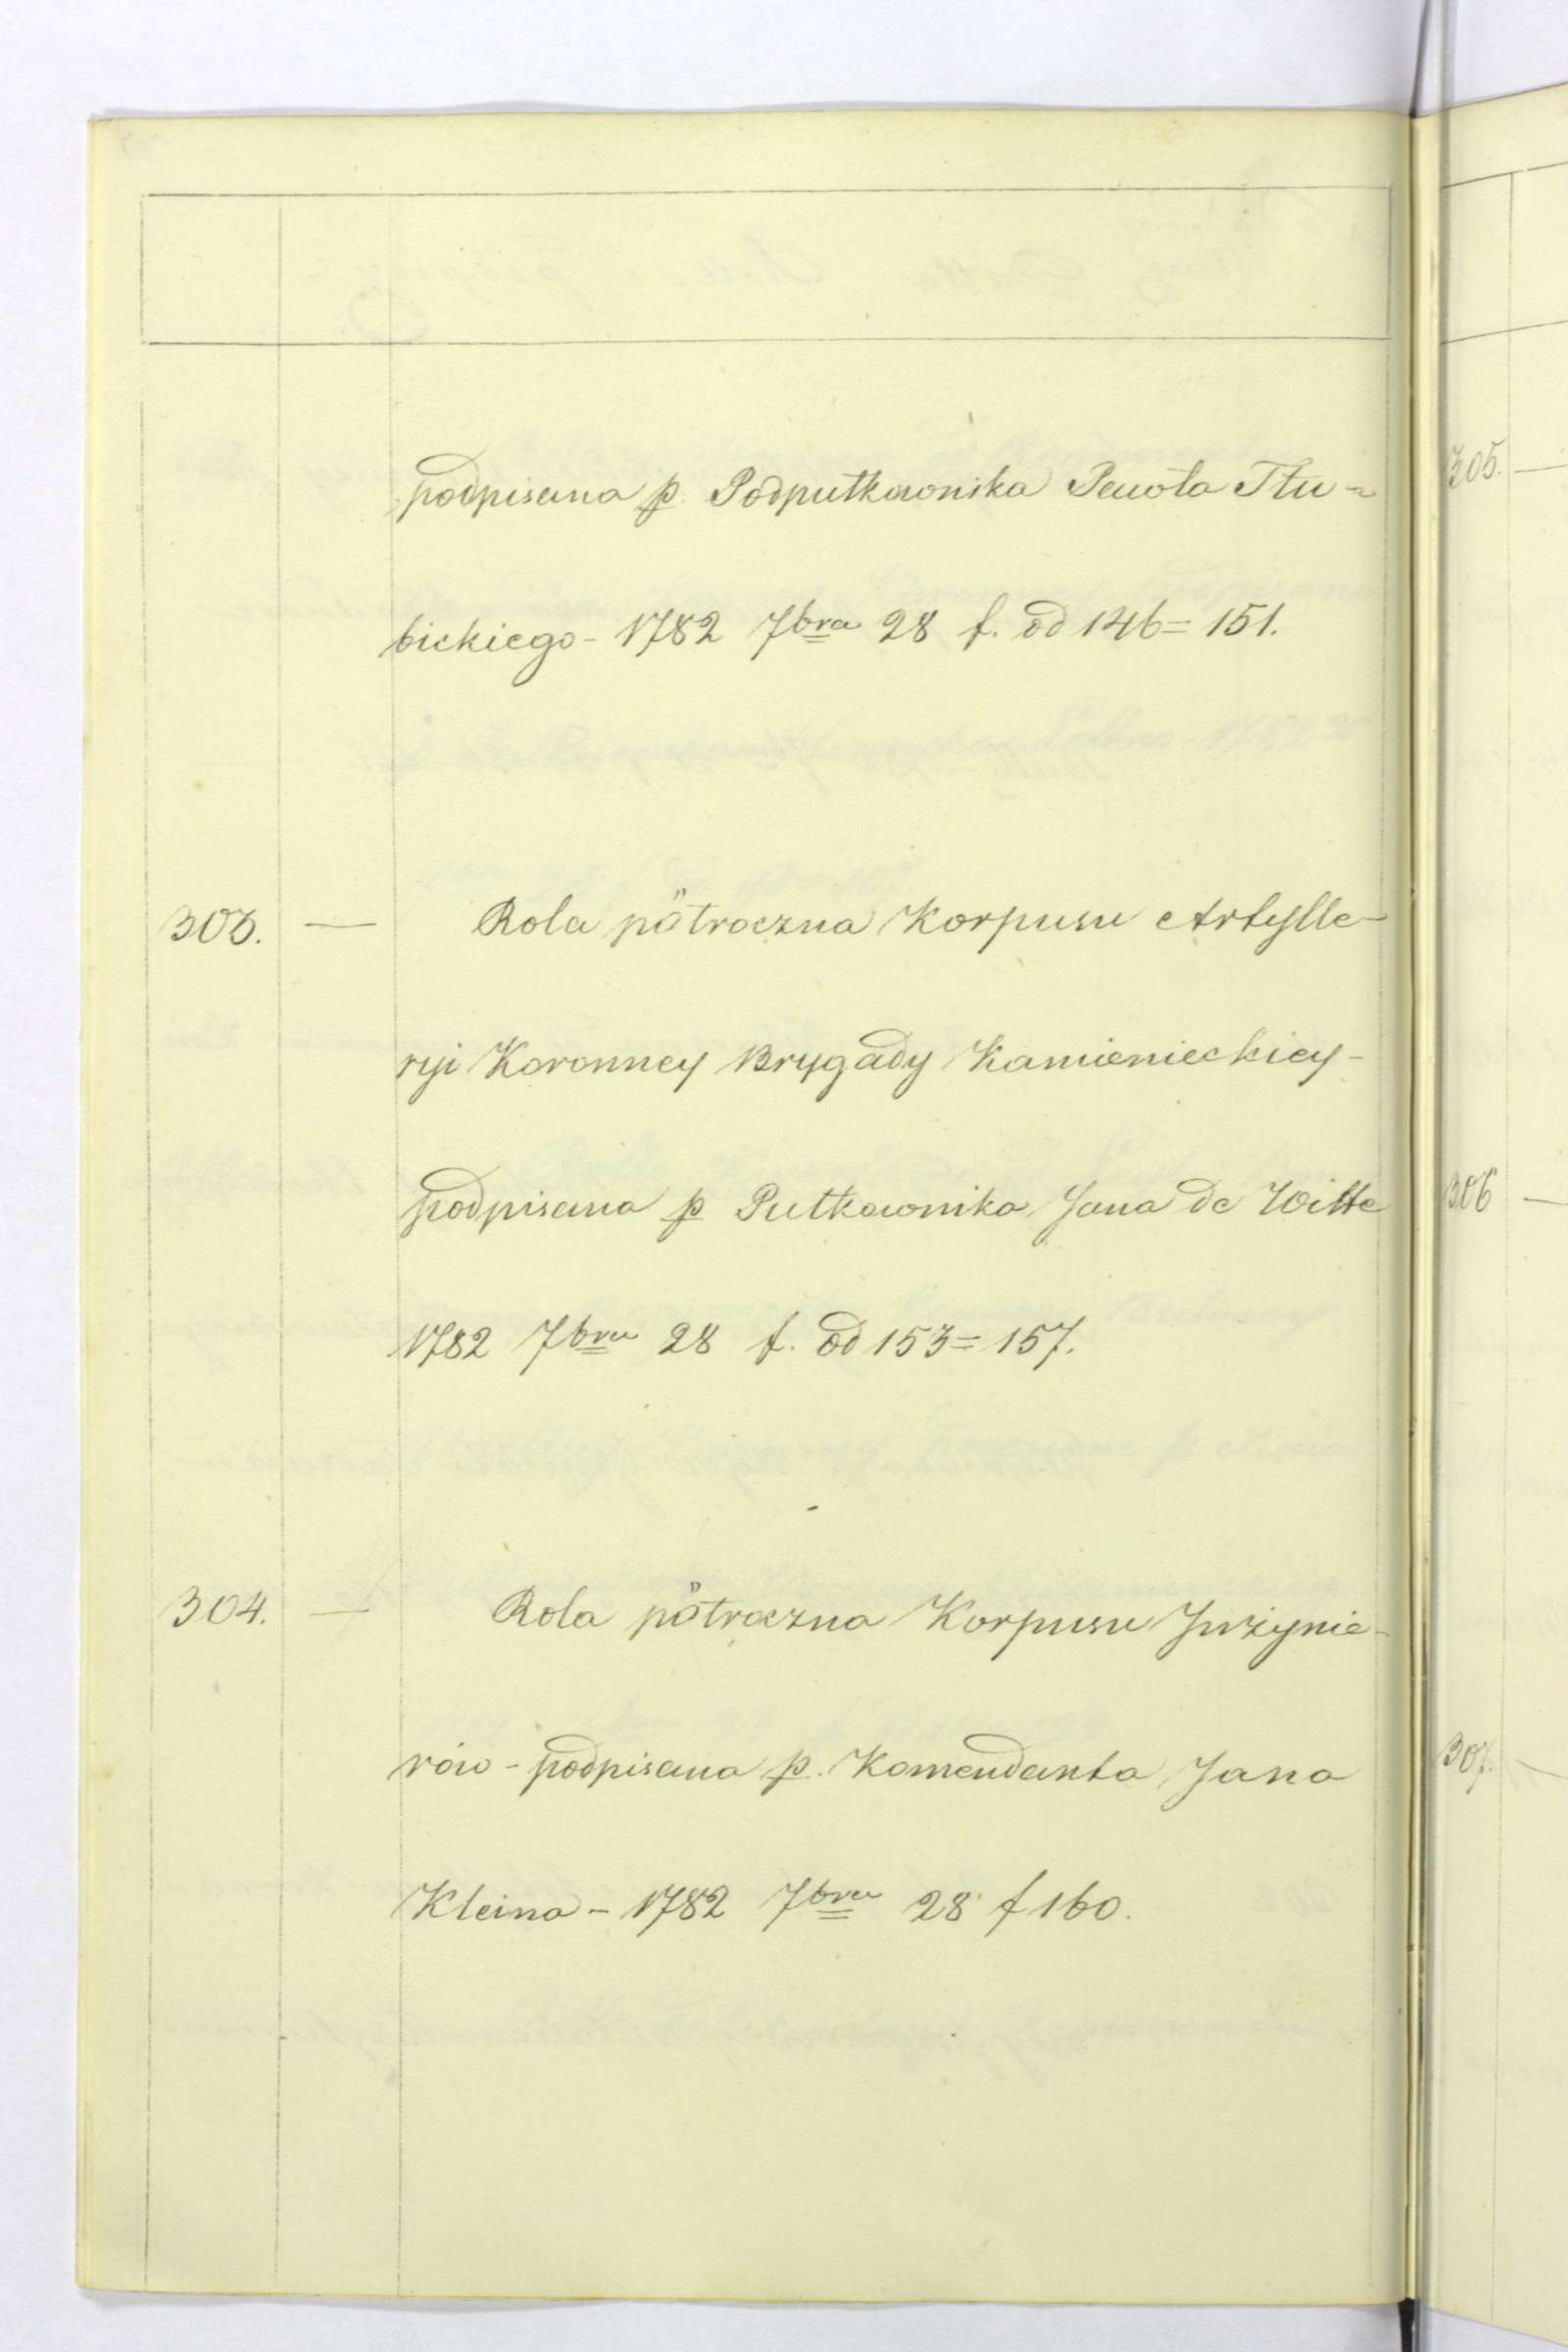 podpisana p. Podputkownika Pawła Tłu=
bickiego - 1782 7bra 28 f. od 146 = 151.
303. — Rola półroczna Korpusu Artylle-
ryi Koronney Brygady Kamienieckiey -
podpisana p Pułkownika Jana de Witte
1782 7bra 28 f. od 153 = 157.
304. — Rola półroczna Korpusu Inżynie-
rów - podpisana p. Komendanta Jana
Kleina - 1782 7bra 28 f 160.
305. —
306 —
307. —